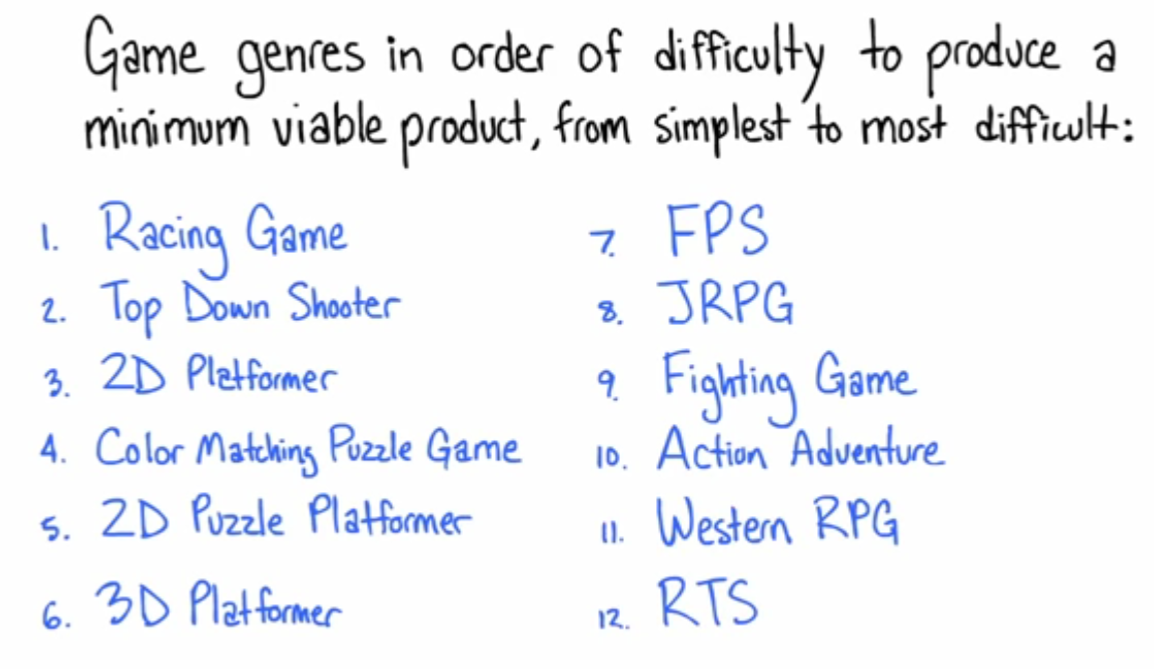 Game genres in order of difficulty to produce a
minimum viable product, from simplest to most difficult:
1. Racing Game
2. Top Down Shooter
3. 2D Platformer
4. Color Matching Puzzle Game
5. 2D Puzzle Platformer
6. 3D Platformer
7. FPS
8. JRPG
9. Fighting Game
10. Action Adventure
11. Western RPG
12. RTS